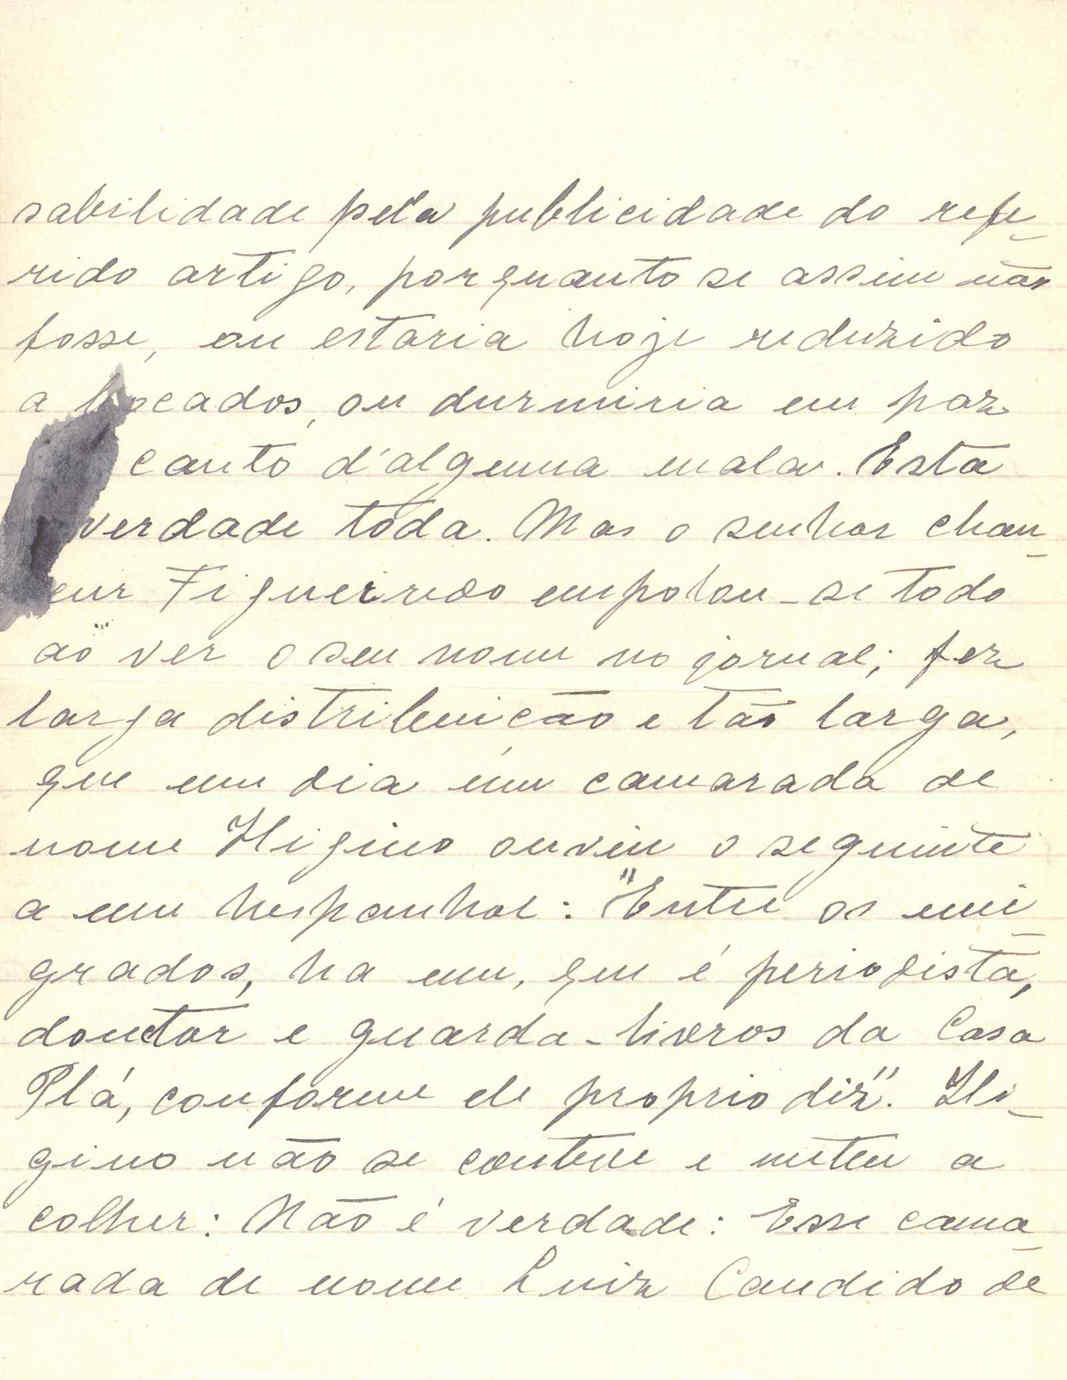 sabilidade pela publicidade do refe-
rido artigo, porquanto se assim não
fosse, ou estaria hoje reduzido
a bocados, ou durmiria em paz
canto d'alguma mala. Esta
verdade toda. Mas o senhor chau-
eur Figueiredo empolou-se todo
ao ver o seu nome no jornal; fez
larga distribuição e tão larga,
que um dia um camarada de
nome Higino ouviu o seguinte
a um hespanhol: "Entre os emi-
grados, ha um, que é periodista,
doutor e guarda-livros da Casa
Plá, conforme ele proprio diz". Hi-
gino não se conteve e meteu a
colher: Não é verdade: Esse cama-
rada de nome Luiz Candido de